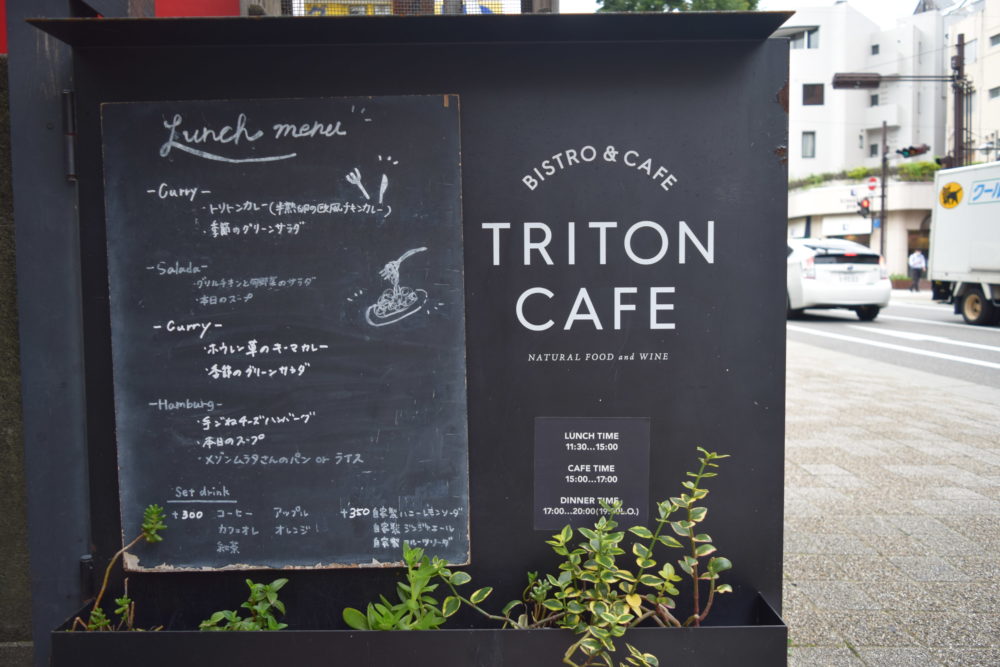 Lunch menu
-Curry-
・トリトンカレー(半熟卵の欧風チキンカレー)
・季節のグリーンサラダ
-Salada-
・グリルチキンと のサラダ
・本日のスープ
-Curry-
・ホウレン草のキーマカレー
・季節のグリーンサラダ
-Hamburg-
・手ごねチーズハンバーグ
・本日のスープ
・メゾンムラタさんのパン or ライス
Set drink
+300 コーヒー アップル
カフェオレ オレンジ
紅茶
+350 自家製ハニーレモンソーダ
自家製ジンジャエール
自家製フルーツソーダ
BISTRO & CAFE
TRITON
CAFE
NATURAL FOOD and WINE
LUNCH TIME
11:30...15:00
CAFE TIME
15:00...17:00
DINNER TIME
17:00...20:00(19:00L.O.)
クール